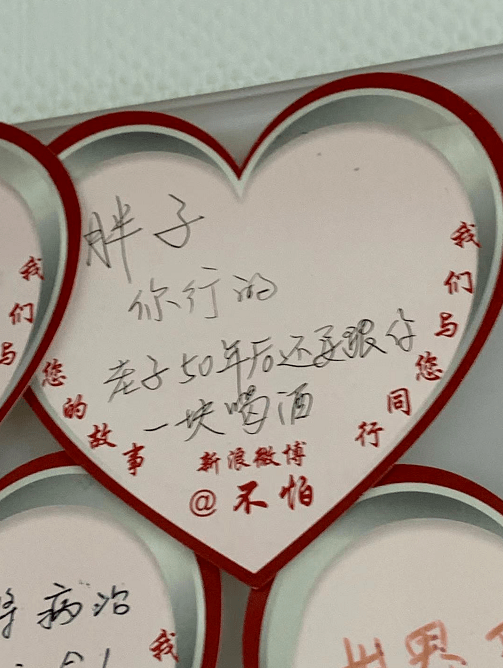 胖子
你行的
老子50年后还要跟你
一块喝酒
我们与您同行
您的故事
新浪微博
@不怕
我们与
病治
我
世界